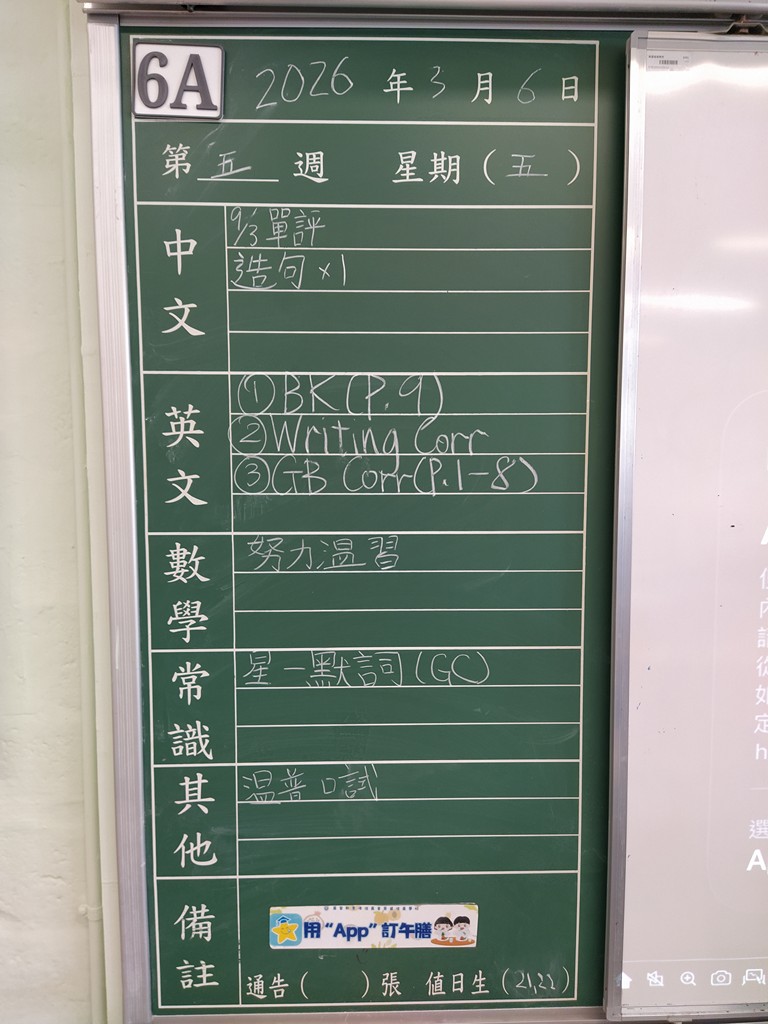 6A
2026 年 3 月 6 日
第 五 週 星期（五）
中文
9/3 單評
造句 ×1
英文
①BK(P.9)
②Writing Corr
③GB Corr(P.1-8)
數學
努力溫習
常識
星一默詞(GC)
其他
溫普口試
備註
用“App”訂午膳
通告（ ）張 值日生（21,22）